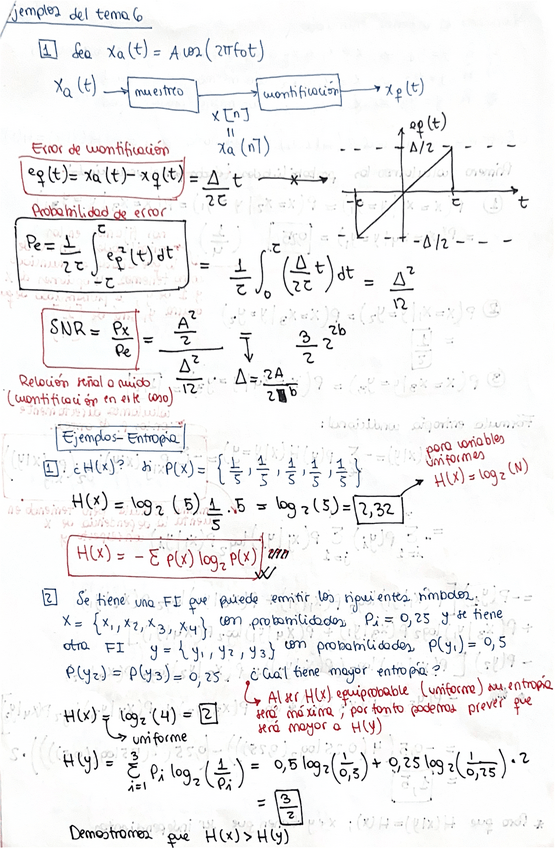 jemplos del tema 6
1 Sea xa(t) = A cos(2πfot)
xa(t) → muestreo → cuantificación → xq(t)
x[n]
=
xa(nT)
Error de cuantificación
eq(t) = xa(t) - xq(t) = Δ/2τ t
eq(t)
Δ/2
-τ τ t
-Δ/2
Probabilidad de error
Pe = 1/2τ ∫_{-τ}^{τ} eq²(t) dt = 1/τ ∫_0^τ (Δ/2τ t) dt = Δ²/12
SNR = Px/Pe = (A²/2)/(Δ²/12) = 3/2 2^{2b}
Δ = 2A/2^b
Relación señal a ruido
(cuantificación en este caso)
Ejemplos - Entropía
1 ¿H(x)? si P(x) = {1/5, 1/5, 1/5, 1/5, 1/5}
para variables
uniformes
H(x) = log₂(N)
H(x) = log₂(5) 1/5 · 5 = log₂(5) = 2,32
H(x) = - Σ p(x) log₂ p(x)
2 Se tiene una FI que puede emitir los siguientes símbolos
X = {x₁, x₂, x₃, x₄} con probabilidades Pi = 0,25 y se tiene
otra FI y = {y₁, y₂, y₃} con probabilidades p(y₁) = 0,5
P(y₂) = P(y₃) = 0,25. ¿Cuál tiene mayor entropía?
Al ser H(x) equiprobable (uniforme) su entropía
será máxima, por tanto podemos prever que
será mayor a H(y)
H(x) = log₂(4) = 2
uniforme
H(y) = Σ_{i=1}^{3} Pi log₂(1/Pi) = 0,5 log₂(1/0,5) + 0,25 log₂(1/0,25) · 2
= 3/2
Demostramos que H(x) > H(y)